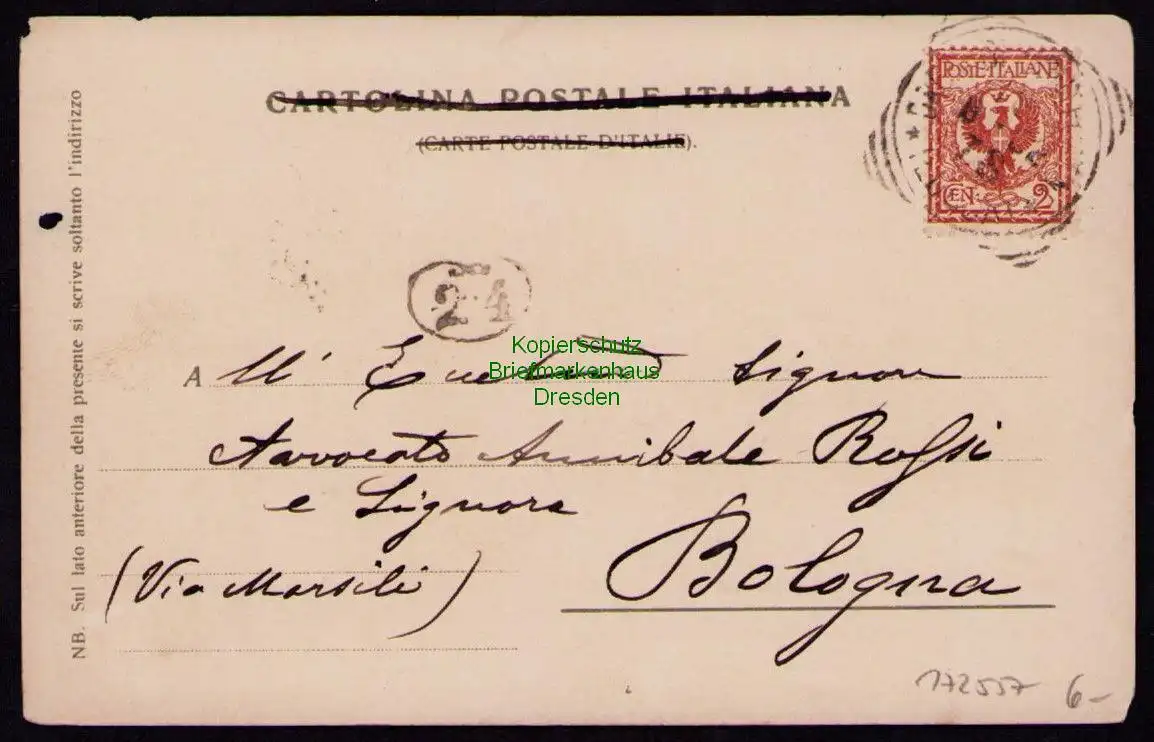 CARTOLINA POSTALE ITALIANA
(CARTE POSTALE D'ITALIE).
POSTE·ITALIANE
CEN: 2
24
Kopierschutz
Briefmarkenhaus
Dresden
A All' Signore
Avvocato Annibale Rossi
e Signora
Bologna
(Via Marsili)
NB. Sul lato anteriore della presente si scrive soltanto l'indirizzo
172557 6-